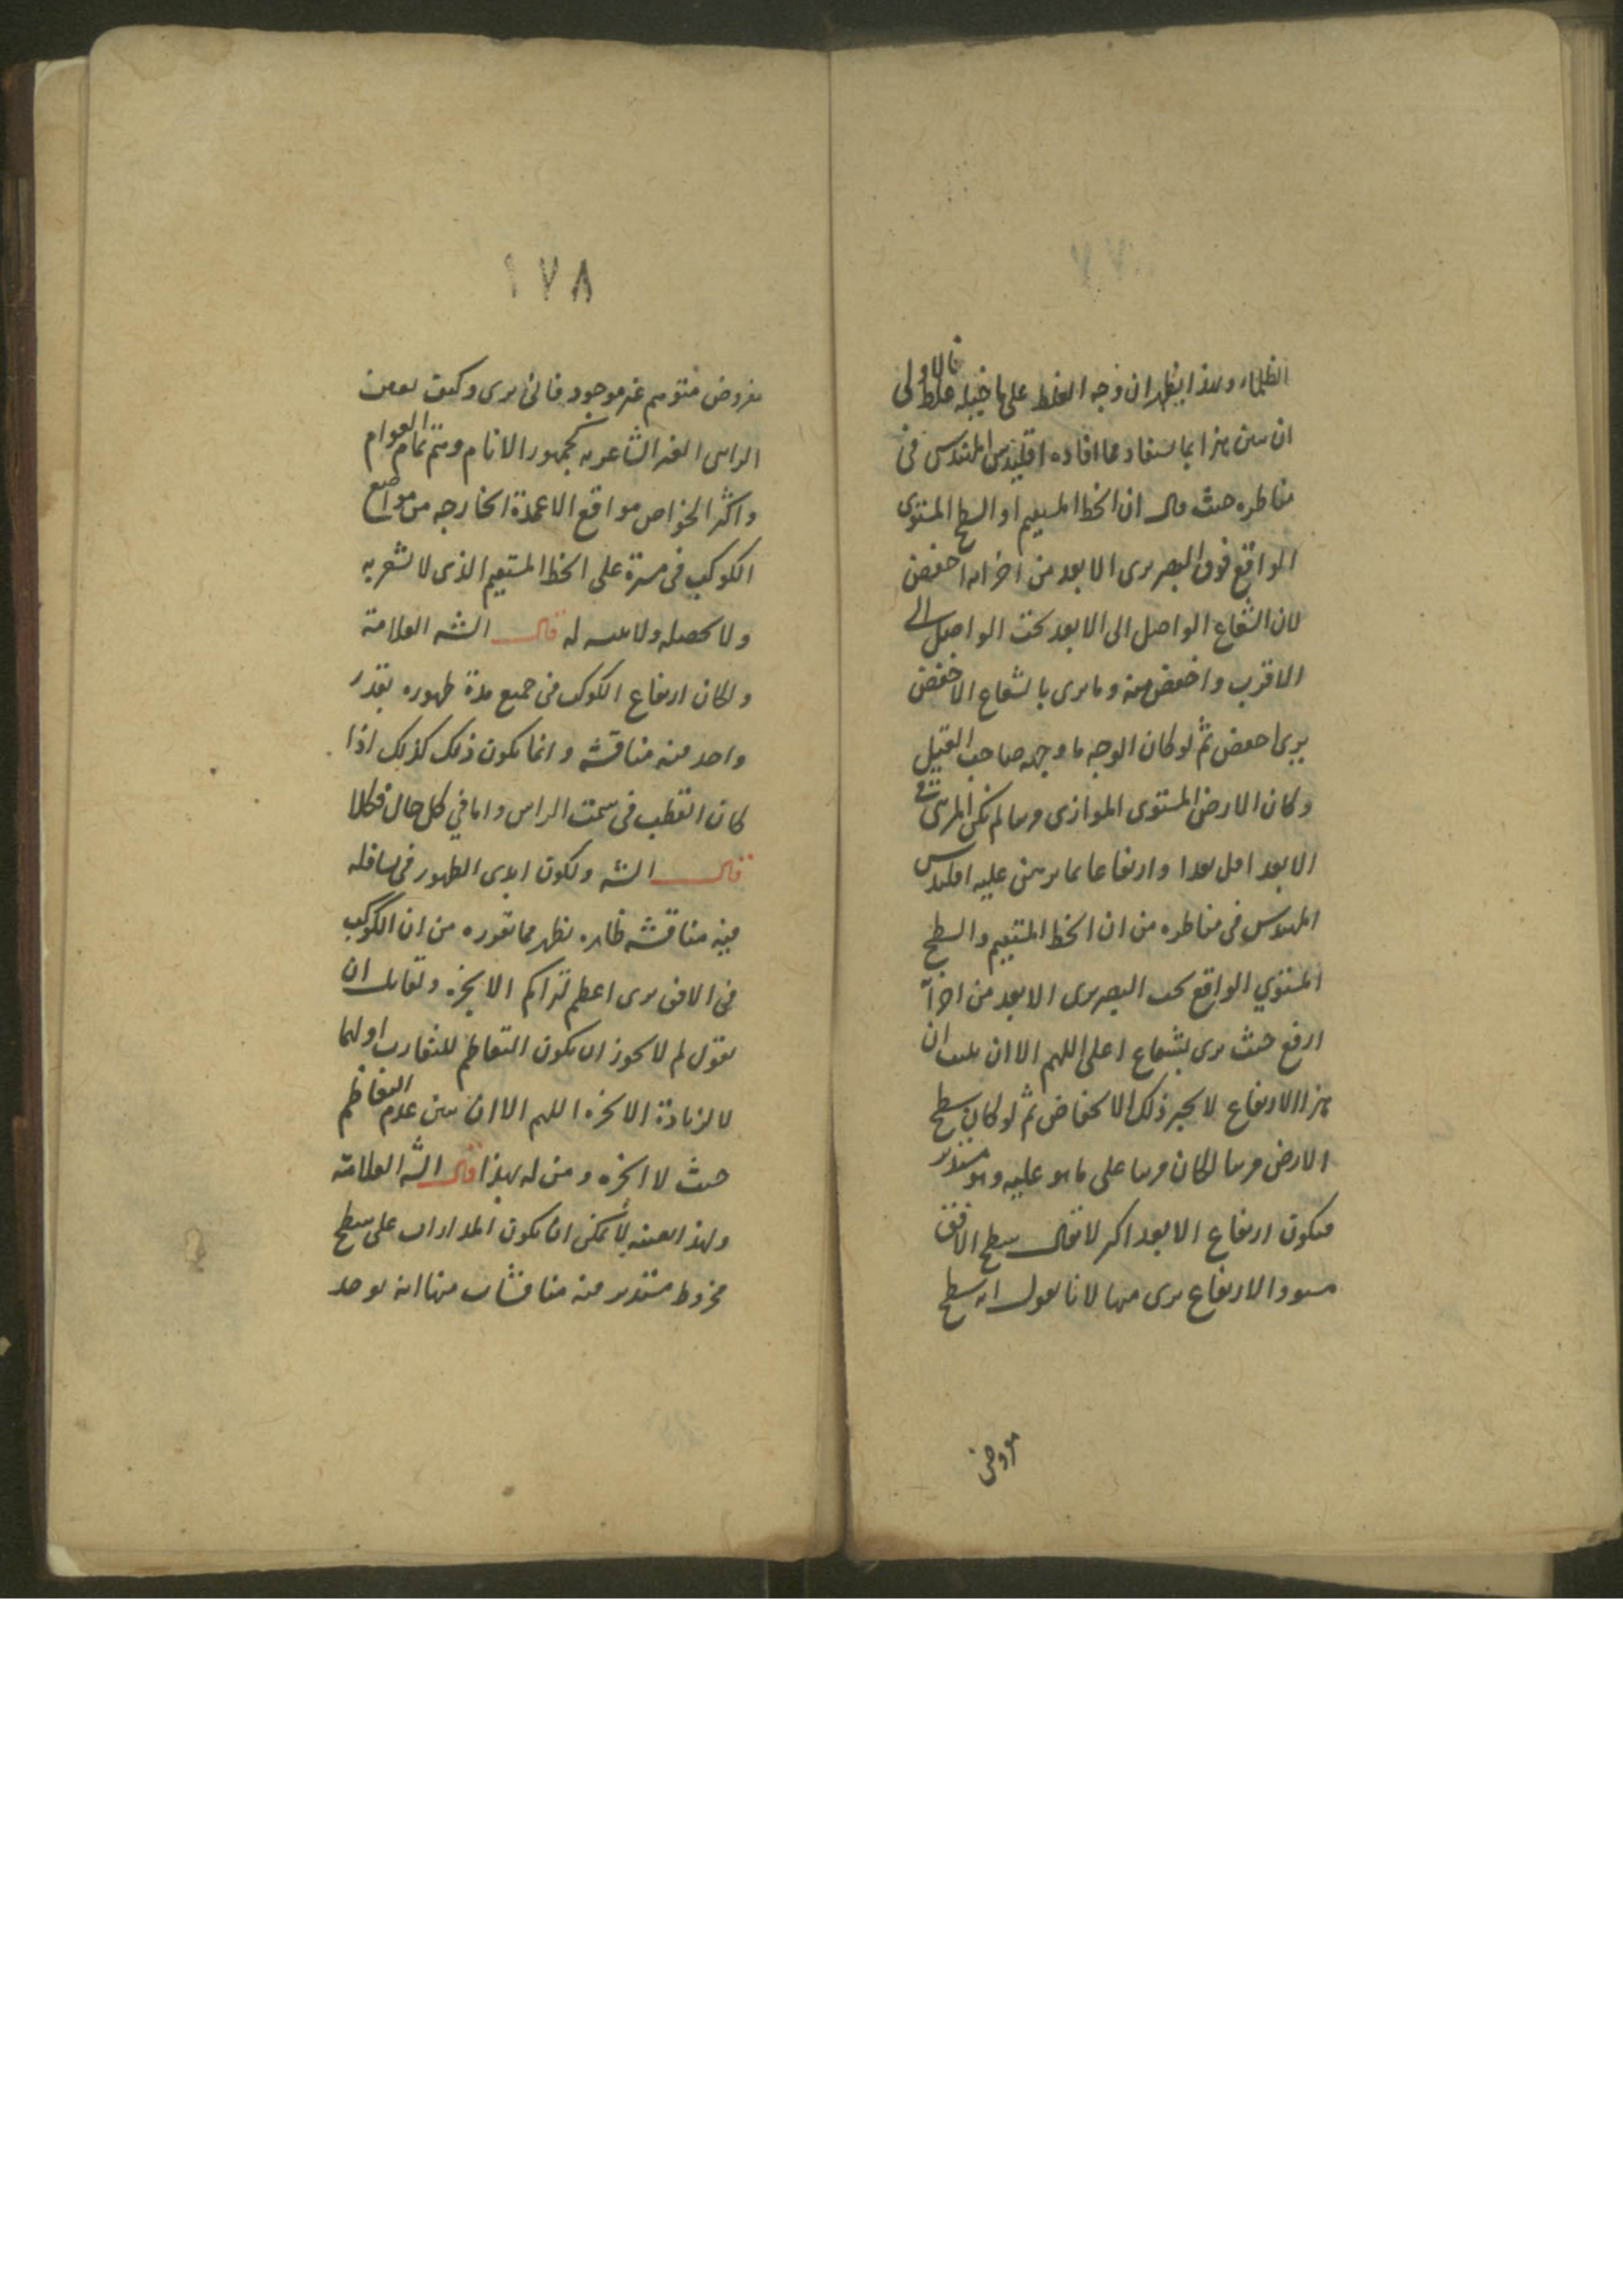 الظلماء وبهذا يظهر ان وجه الغلط على ما خيله غلط فالاولى
ان يبين هذا بما يستفاد مما افاده اقليدس المهندس في
مناظره حيث قال ان الخط المستقيم او السطح المستوى
الواقع فوق البصر يرى الابعد من اجزائه اخفض
لان الشعاع الواصل الى الابعد تحت الواصل الى
الاقرب واخفض منه وما يرى بالشعاع الاخفض
يرى اخفض ثم لو كان الوجه ما وجهه صاحب القيل
وكان الارض المستوى الموازى لم يكن المرئى في
الابعد اقل بعدا وارتفاعا بما برهن عليه اقليدس
المهندس في مناظره من ان الخط المستقيم والسطح
المستوي الواقع تحت البصر يرى الابعد من اجزائه
ارفع حيث يرى بشعاع اعلى اللهم الا ان يثبت ان
هذا الارتفاع لا يجبر ذلك الانخفاض ثم لو كان سطح
الارض مرئيا لكان مرئيا على ما هو عليه وهو مستدير
فيكون ارتفاع الابعد اكثر لا يقال سطح الافق
مستو والارتفاع يرى منها لانا نقول انه سطح
مفروض
١٧٨
مفروض متوهم غير موجود فانى يرى وكيف
الراس الغير الشاعر به جمهور الانام وهم تمام العوام
واكثر الخواص مواقع الاعمدة الخارجه من مواضع
الكوكب في مسيرة على الخط المستقيم الذى لا يشعر به
ولا يحصله ولا له قال الشه العلامة
ولكان ارتفاع الكوكب في جميع مدة ظهوره بقدر
واحد فيه مناقشه وانما يكون ذلك كذلك اذا
كان القطب في سمت الراس واما في كل حال فكلا
قال الشه ولكون ابدى الظهور في
فيه مناقشه ظاهره تظهر مما تقوره من ان الكوكب
في الافق يرى اعظم لتراكم الابخره ولقائل ان
يقول لم لا يجوز ان يكون التعاظم للتقارب اولهما
لا لزيادة الابخره اللهم الا ان يبين عدم التعاظم
حيث لا ابخره ومن له بهذا قال الشه العلامة
ولهذا بعينه لا يمكن ان يكون المدارات على سطح
مخروط مستدير فيه مناقشات منها انه يوجد